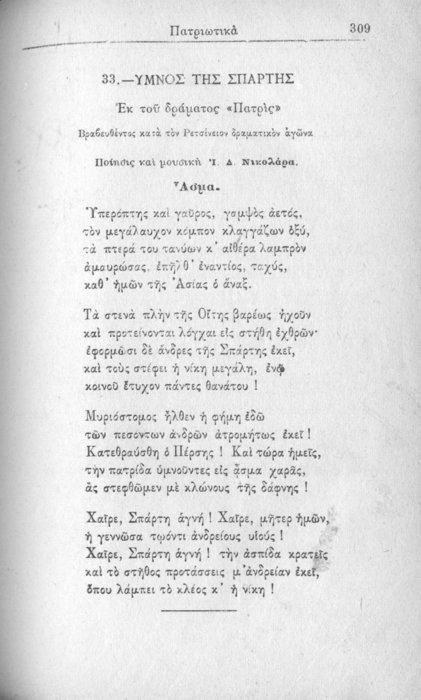 Πατριωτικὰ
309
33.—ΥΜΝΟΣ ΤΗΣ ΣΠΑΡΤΗΣ
Ἐκ τοῦ δράματος «Πατρὶς»
Βραβευθέντος κατὰ τὸν Ρετσίνειον δραματικὸν ἀγῶνα
Ποίησις καὶ μουσικὴ Ἰ. Δ. Νικολάρα.
Ἆσμα.
Ὑπερόπτης καὶ γαῦρος, γαμψὸς ἀετός,
τὸν μεγάλαυχον κόμπον κλαγγάζων ὀξύ,
τὰ πτερά του τανύων κ' αἰθέρα λαμπρὸν
ἀμαυρώσας, ἐπῆλθ' ἐναντίος, ταχύς,
καθ' ἡμῶν τῆς Ἀσίας ὁ ἄναξ.
Τὰ στενὰ πλὴν τῆς Οἴτης βαρέως ἠχοῦν
καὶ προτείνονται λόγχαι εἰς στήθη ἐχθρῶν·
ἐφορμῶσι δὲ ἄνδρες τῆς Σπάρτης ἐκεῖ,
καὶ τοὺς στέφει ἡ νίκη μεγάλη, ἐνῷ
κοινοῦ ἔτυχον πάντες θανάτου !
Μυριόστομος ἦλθεν ἡ φήμη ἐδῶ
τῶν πεσόντων ἀνδρῶν ἀτρομήτως ἐκεῖ !
Κατεθραύσθη ὁ Πέρσης ! Καὶ τώρα ἡμεῖς,
τὴν πατρίδα ὑμνοῦντες εἰς ᾆσμα χαρᾶς,
ἂς στεφθῶμεν μὲ κλώνους τῆς δάφνης !
Χαῖρε, Σπάρτη ἁγνή ! Χαῖρε, μῆτερ ἡμῶν,
ἡ γεννῶσα τῳόντι ἀνδρείους υἱούς !
Χαῖρε, Σπάρτη ἁγνή ! τὴν ἀσπίδα κρατεῖς
καὶ τὸ στῆθος προτάσσεις μ' ἀνδρείαν ἐκεῖ,
ὅπου λάμπει τὸ κλέος κ' ἡ νίκη !